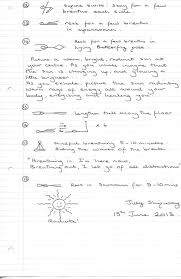 Supine twist. Stay for a few
breaths each side.
rest for a few breaths
in savasana.
Rest for a few breaths in
lying Butterfly pose
Picture a warm, bright, radiant sun at
your centre. As you inhale imagine that
the sun is charging up, and glowing a
little brighter.
As you exhale, picture the sun radiating
warm rays of energy all around your
body, energising and healing you
lengthen along the floor
x 6
Mindful breathing 5-10 minutes
Riding the waves of the breath
"Breathing in I'm here now,
Breathing out, I let go of all distractions"
Rest in Savasana for 5-10 mins
Judy Shipway
13th June 2013